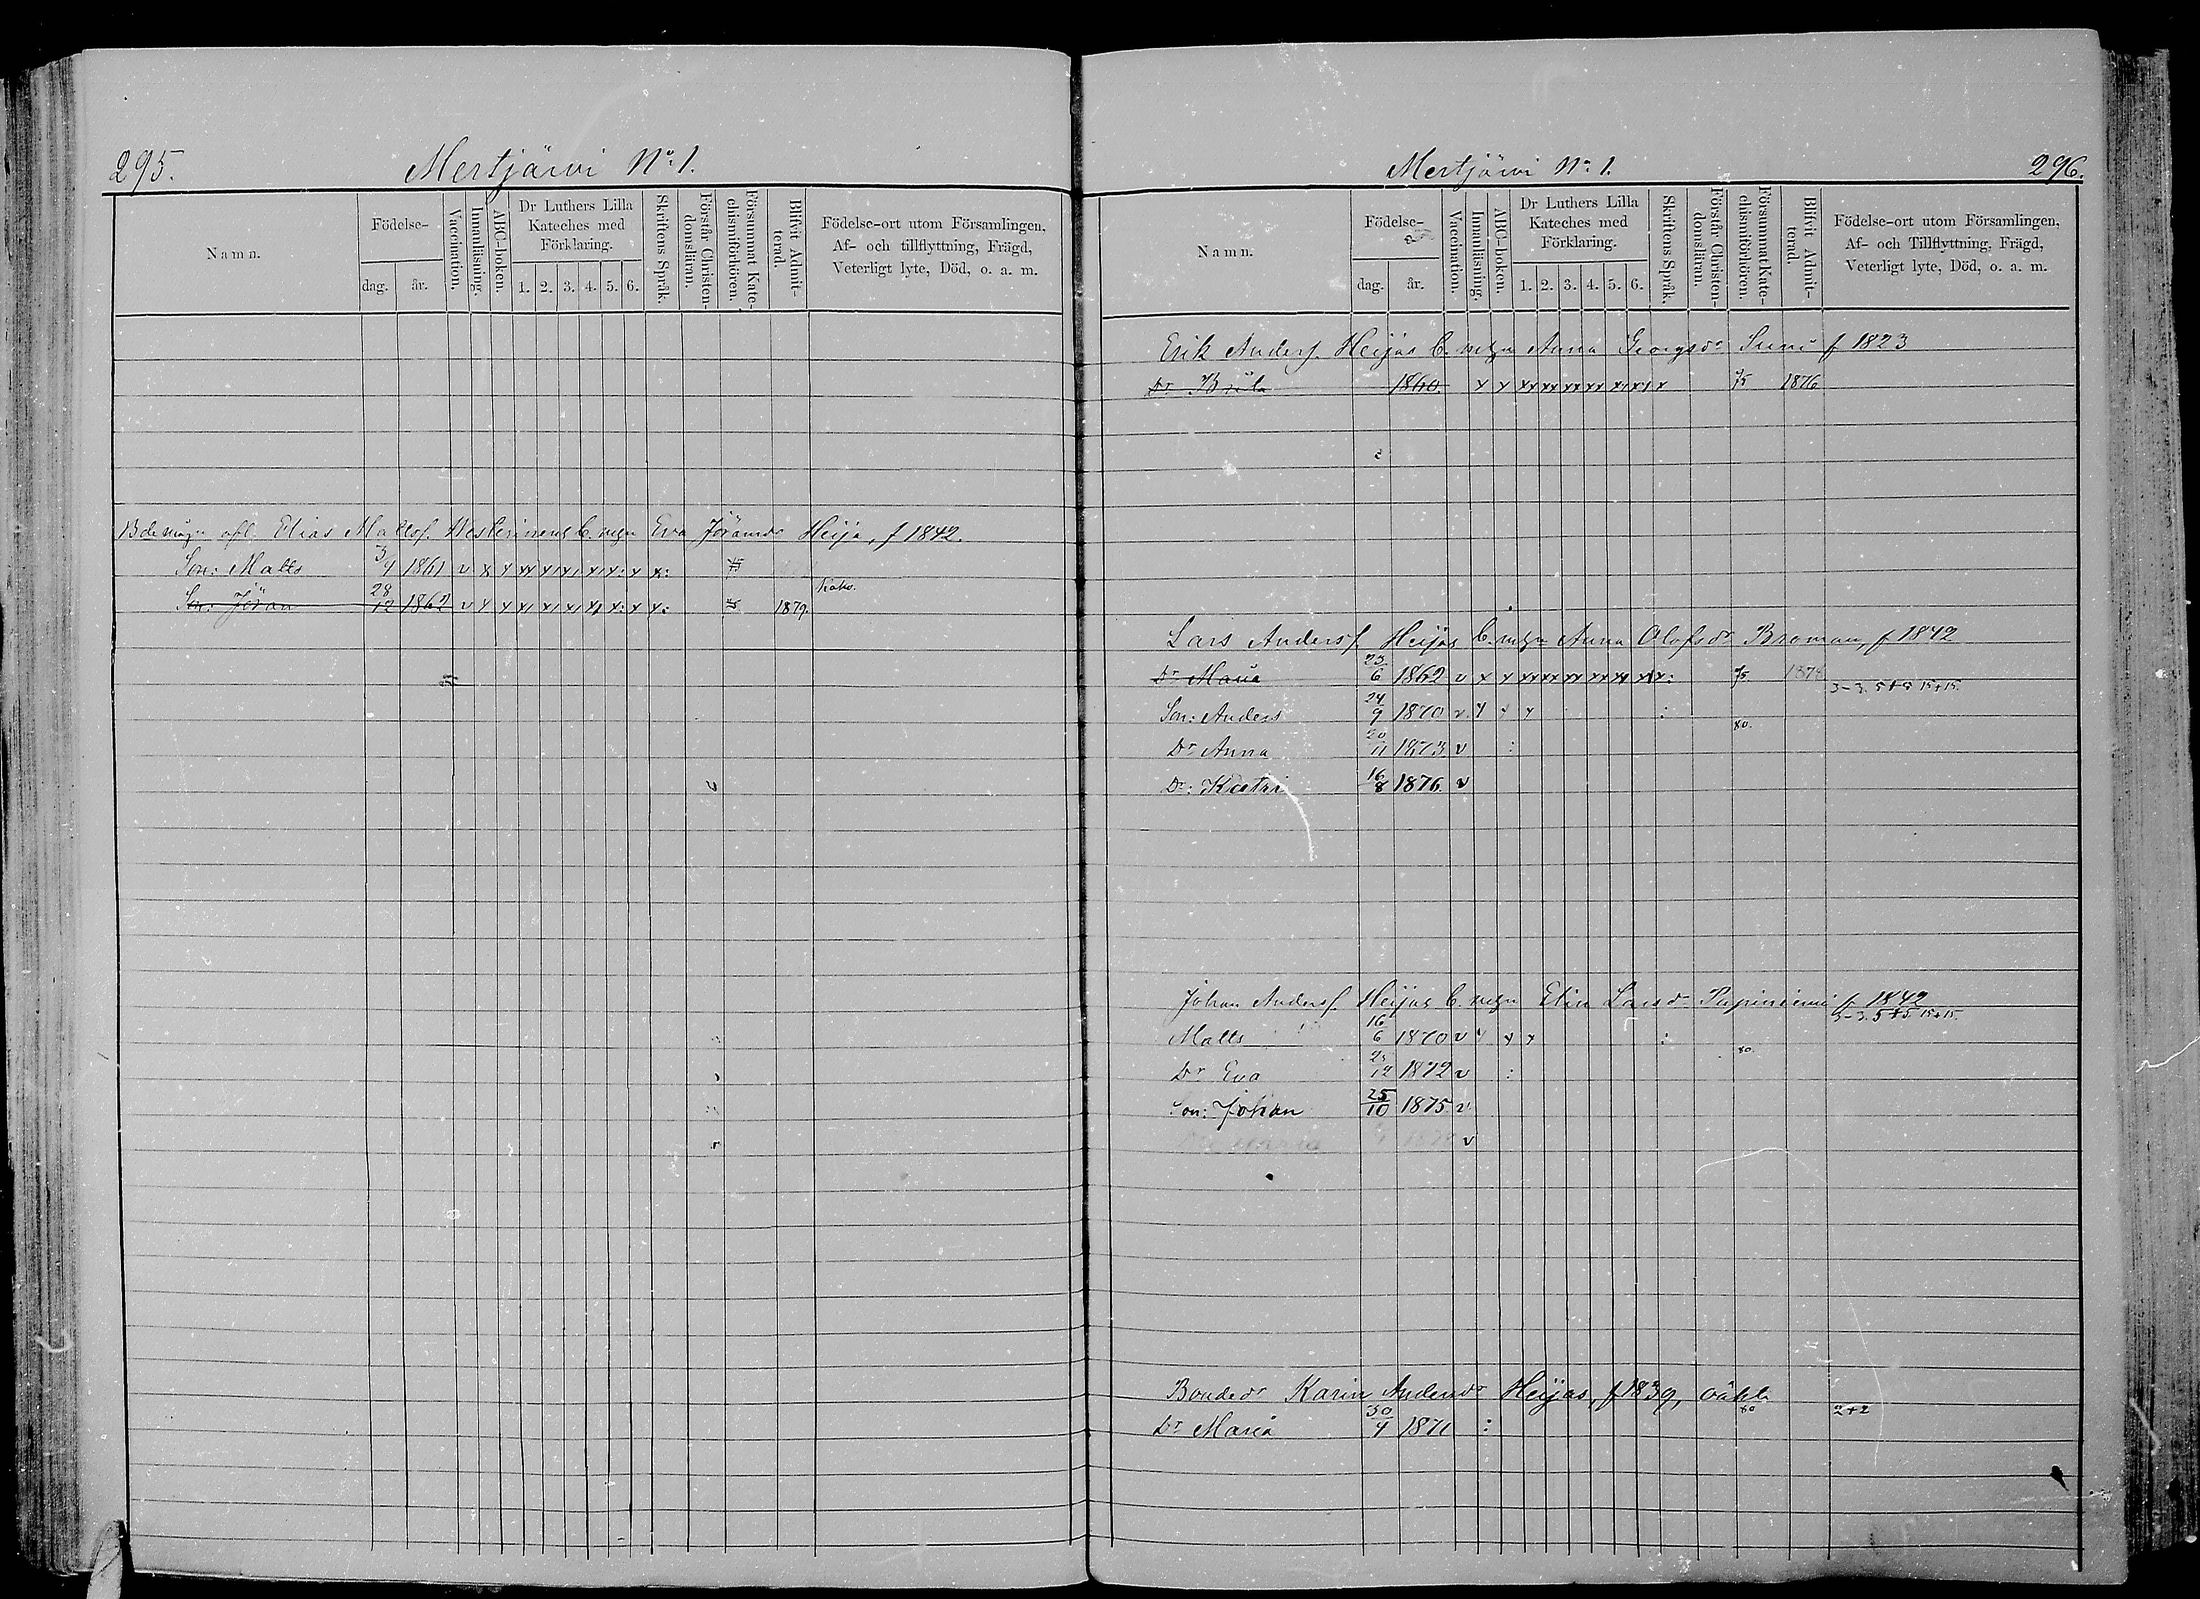 295.
Mertjärvi No 1.
Namn.
Födelse-
dag.
år.
Vaccination.
Innanläsning.
ABC-boken.
Dr Luthers Lilla
Kateches med
Förklaring.
1. 2. 3. 4. 5. 6.
Skriftens Språk.
Förstår Christen-
domsläran.
Försummat Kate-
chismiförhören.
Blifvit Admit-
terad.
Födelse-ort utom Församlingen,
Af- och tillflyttning, Frägd,
Veterligt lyte, Död, o. a. m.
Elias Matts. Eva Heija, f 1842.
Son: Matts 3/4 1861 v x x xx x x x x
Son: Jöran 28/12 1862 v x x x x x x 1879.
Mertjärvi No 1.
296.
Namn.
Födelse-
dag.
år.
Vaccination.
Innanläsning.
ABC-boken.
Dr Luthers Lilla
Kateches med
Förklaring.
1. 2. 3. 4. 5. 6.
Skriftens Språk.
Förstår Christen-
domsläran.
Försummat Kate-
chismiförhören.
Blifvit Admit-
terad.
Födelse-ort utom Församlingen,
Af- och Tillflyttning, Frägd,
Veterligt lyte, Död, o. a. m.
Erik Anders. Heijas Anna Georgsdr f 1823
Dr 1860 x x xx xx xx xx x 75 1876
Lars Anders. Heijas Anna Olofsdr Broman, f 1842
Dr Maria 23/6 1862 v x x xx xx xx xx 75.
3-3. 5+5 15+15.
Son: Anders 24/9 1870 v x x x :
80.
Dr Anna 20/11 1873 v :
Dr: 16/8 1876. v
Johan Anders. Heijas Elin Larsdr f 1842
3-3. 5+5. 15+15.
Matts 16/6 1870 v x x x :
80.
Dr Eva 1872 v :
Son: Johan 25/10 1875 v
v
Bondedr Karin Andersdr Heijas, f 1839,
80 2+2
Dr Maria 30/4 1871 :